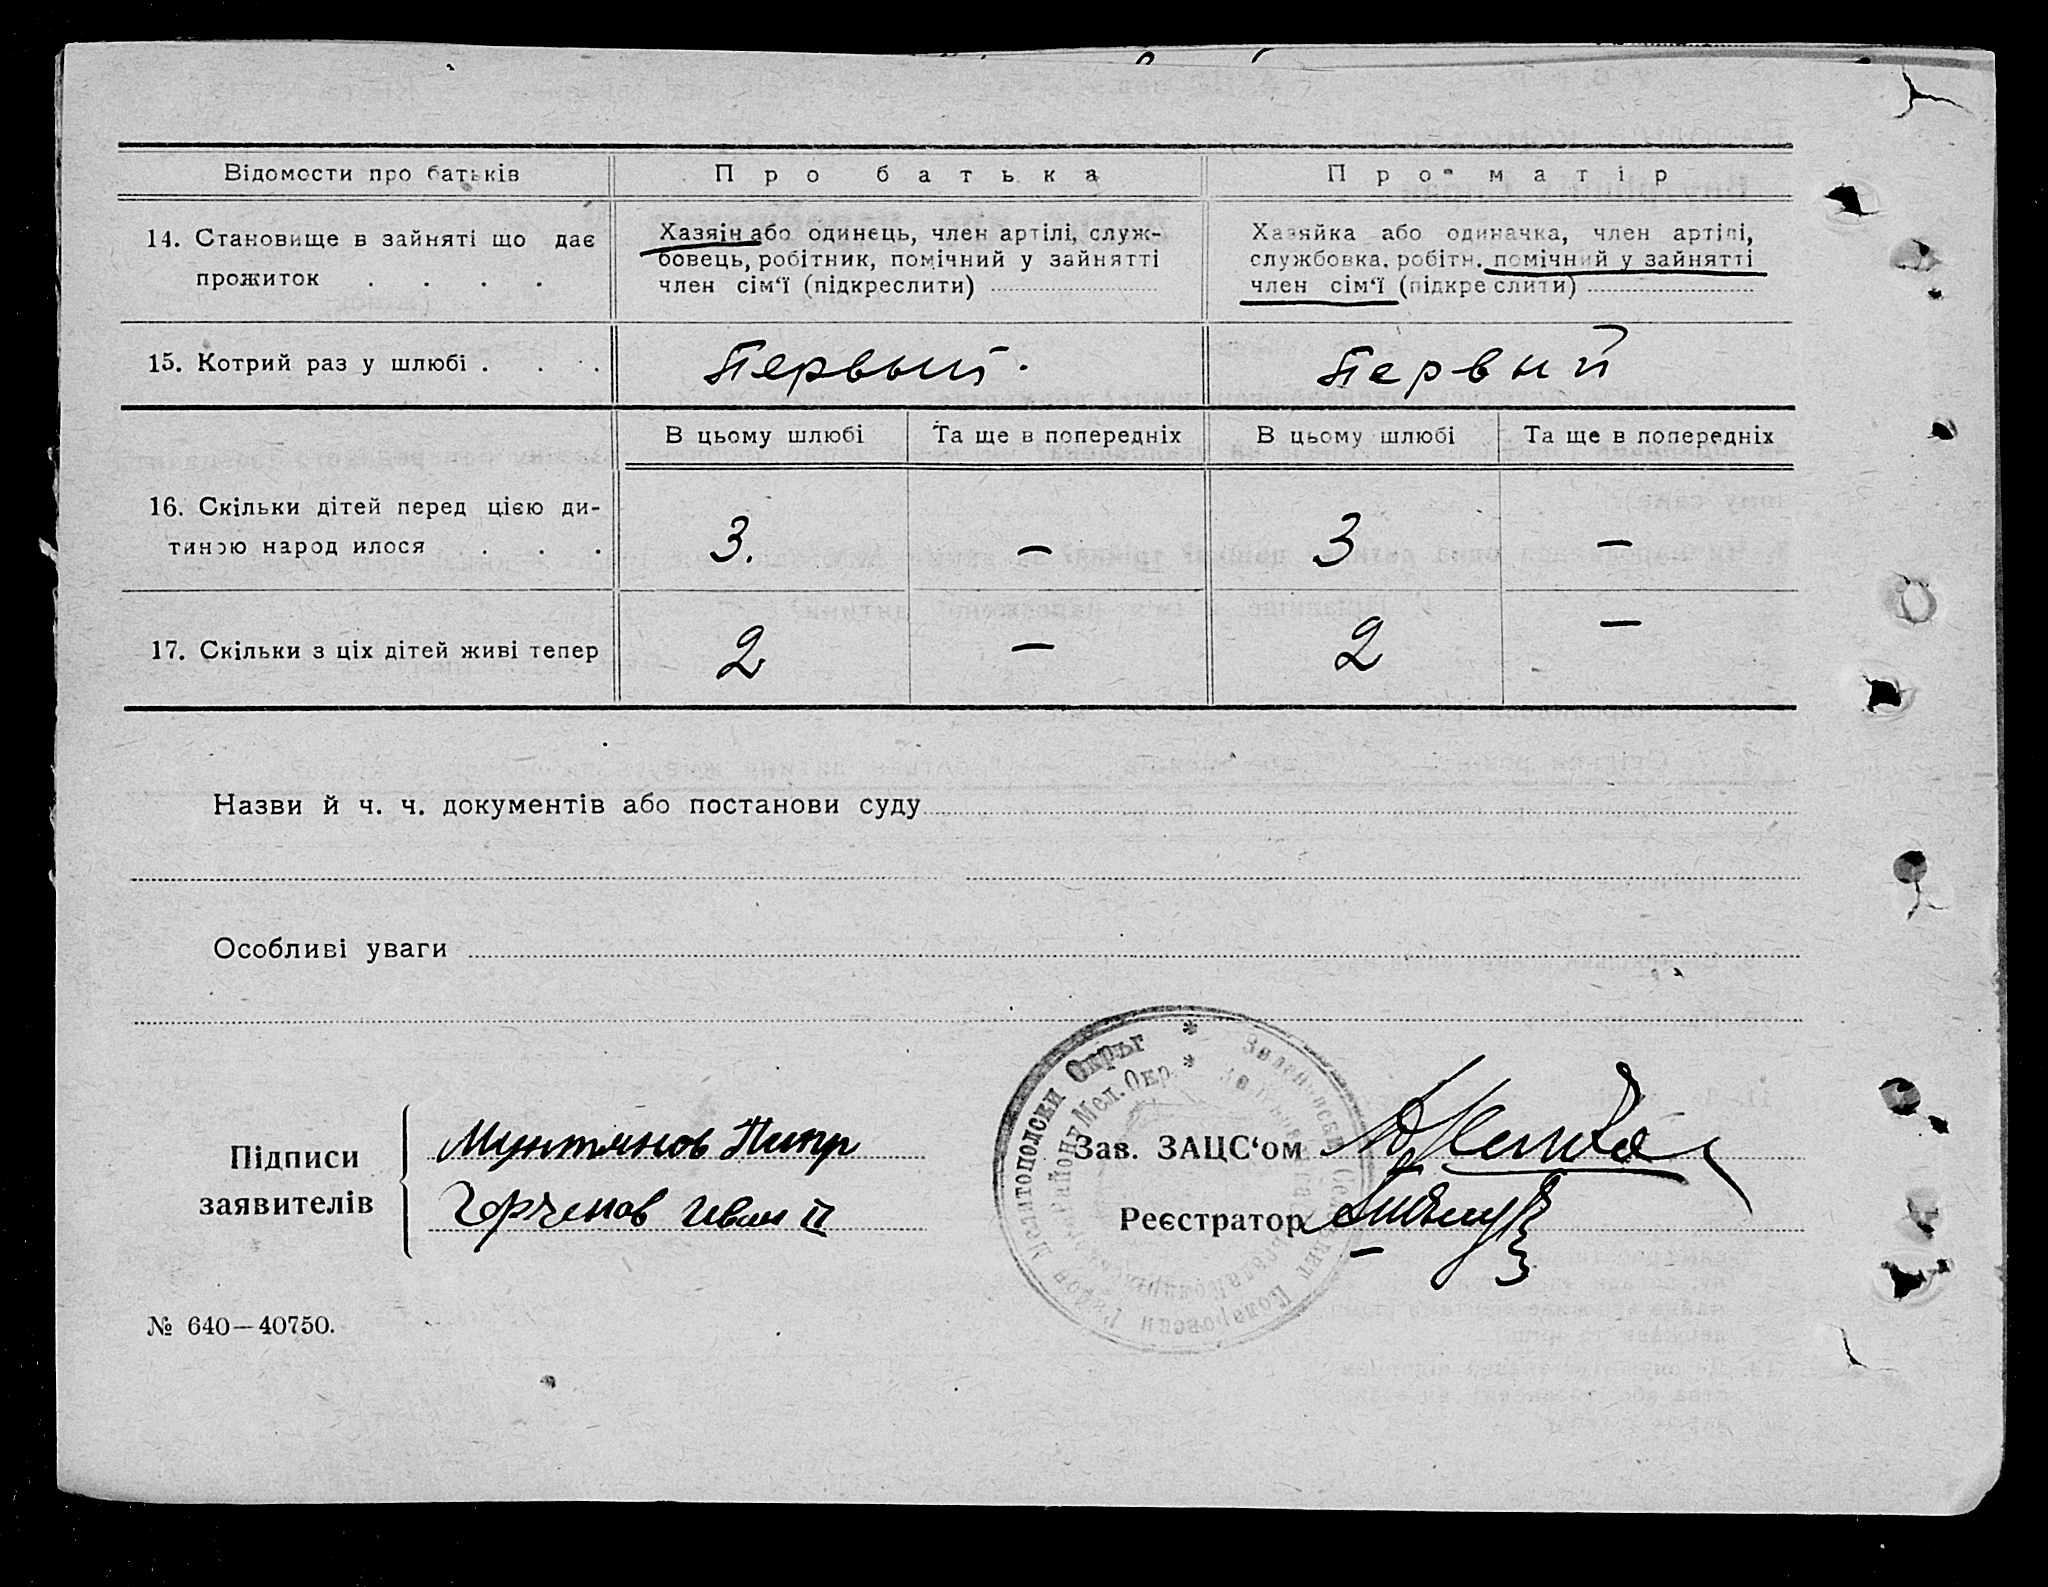 Відомости про батьків
Про батька
Про матір
14. Становище в зайняті що дає
прожиток . . . .
Хазяїн або одинець, член артілі, служ-
бовець, робітник, помічний у зайнятті
член сім‘ї (підкреслити)
Хазяйка або одиначка, член артілі,
службовка, робітн. помічний у зайнятті
член сім‘ї (підкреслити)
15. Котрий раз у шлюбі . . .
Первый.
Первый
В цьому шлюбі
Та ще в попередніх
В цьому шлюбі
Та ще в попередніх
16. Скільки дітей перед цією ди-
тиною народилося . . .
3.
—
3
—
17. Скільки з ціх дітей живі тепер
2
—
2
—
Назви й ч. ч. документів або постанови суду
Особливі уваги
Підписи
заявителів
Мунтянов Петр
Горченов Иван II
Мелитополски Окръг *
району Мел. Окр. *
Коларовски Район
Зав. ЗАЦС‘ом
Реєстратор
№ 640—40750.